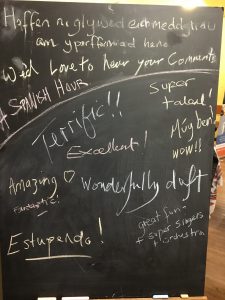 Hoffen ni glywed eich meddyliau
am y perfformiad heno
We'd Love to hear your Comments
A SPANISH HOUR
Super
talent!
Terrific!!
Excellent!
Muy ben
wow!!
Amazing ♡
Fantastic!
Wonderfully daft
great fun -
+ super singers
+ orchestra
Estupendo!